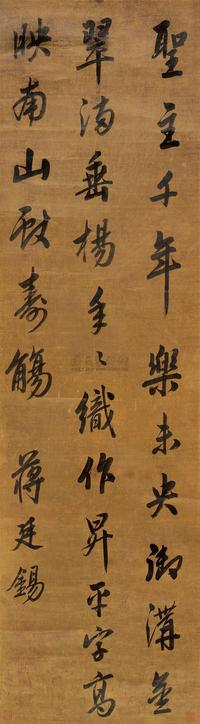 聖主千年樂未央御溝金
翠滿垂楊年々織作昇平字高
映南山獻壽觴 蔣廷錫